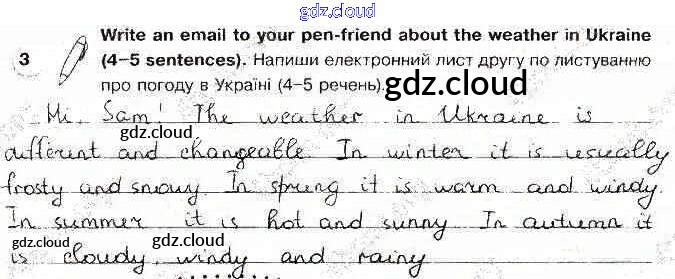 gdz.cloud
3
Write an email to your pen-friend about the weather in Ukraine
(4–5 sentences). Напиши електронний лист другу по листуванню
про погоду в Україні (4–5 речень).
gdz.cloud
Hi, Sam! The weather in Ukraine is
gdz.cloud
different and changeable. In winter it is usually
frosty and snowy. In spring it is warm and windy.
In summer it is hot and sunny. In autumn it
gdz.cloud
gdz.cloud
is cloudy, windy and rainy